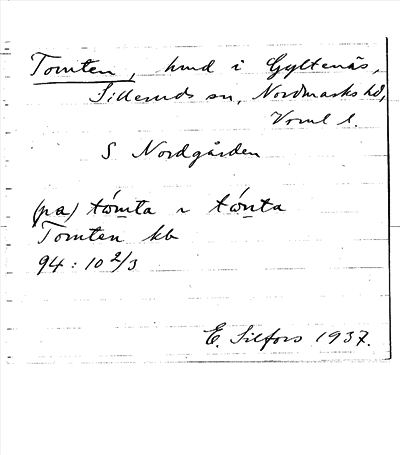 Tomten, hmd i Gyltenäs,
Silleruds sn, Nordmarks hd,
Vrml l.
S Nordgården
(pa) tómta r tónta
Tomten kb
94 : 10 2/3
E. Silfors 1937.